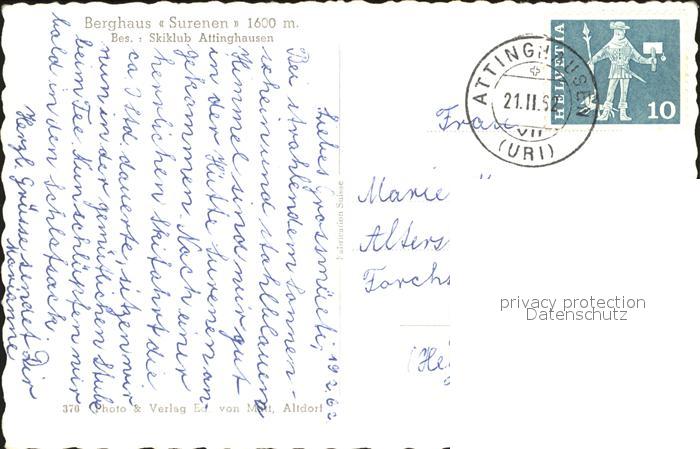 Berghaus « Surenen » 1600 m.
Bes. : Skiklub Attinghausen
19.2.62
Liebes Grossmüeti,
Bei strahlendem Sonnen-
schein und stahlblauem
Himmel sind wir gut
in der Hütte Surenen an-
gekommen. Nach einer
herrlichen Skifahrt die
ca 3 Std. dauerte, sitzen wir
nun in der gemütlichen Stube
beim Tee. Nun schlüpfen wir
bald in den Schlafsack.
Herzl. Grüsse sendet Dir
Fabrication Suisse
376 Photo & Verlag Ed. von Matt, Altdorf
HELVETIA
10
ATTINGHAUSEN
21.II.62
VII
(URI)
Frau
Marie
Alters
Forchs
(He
privacy protection
Datenschutz